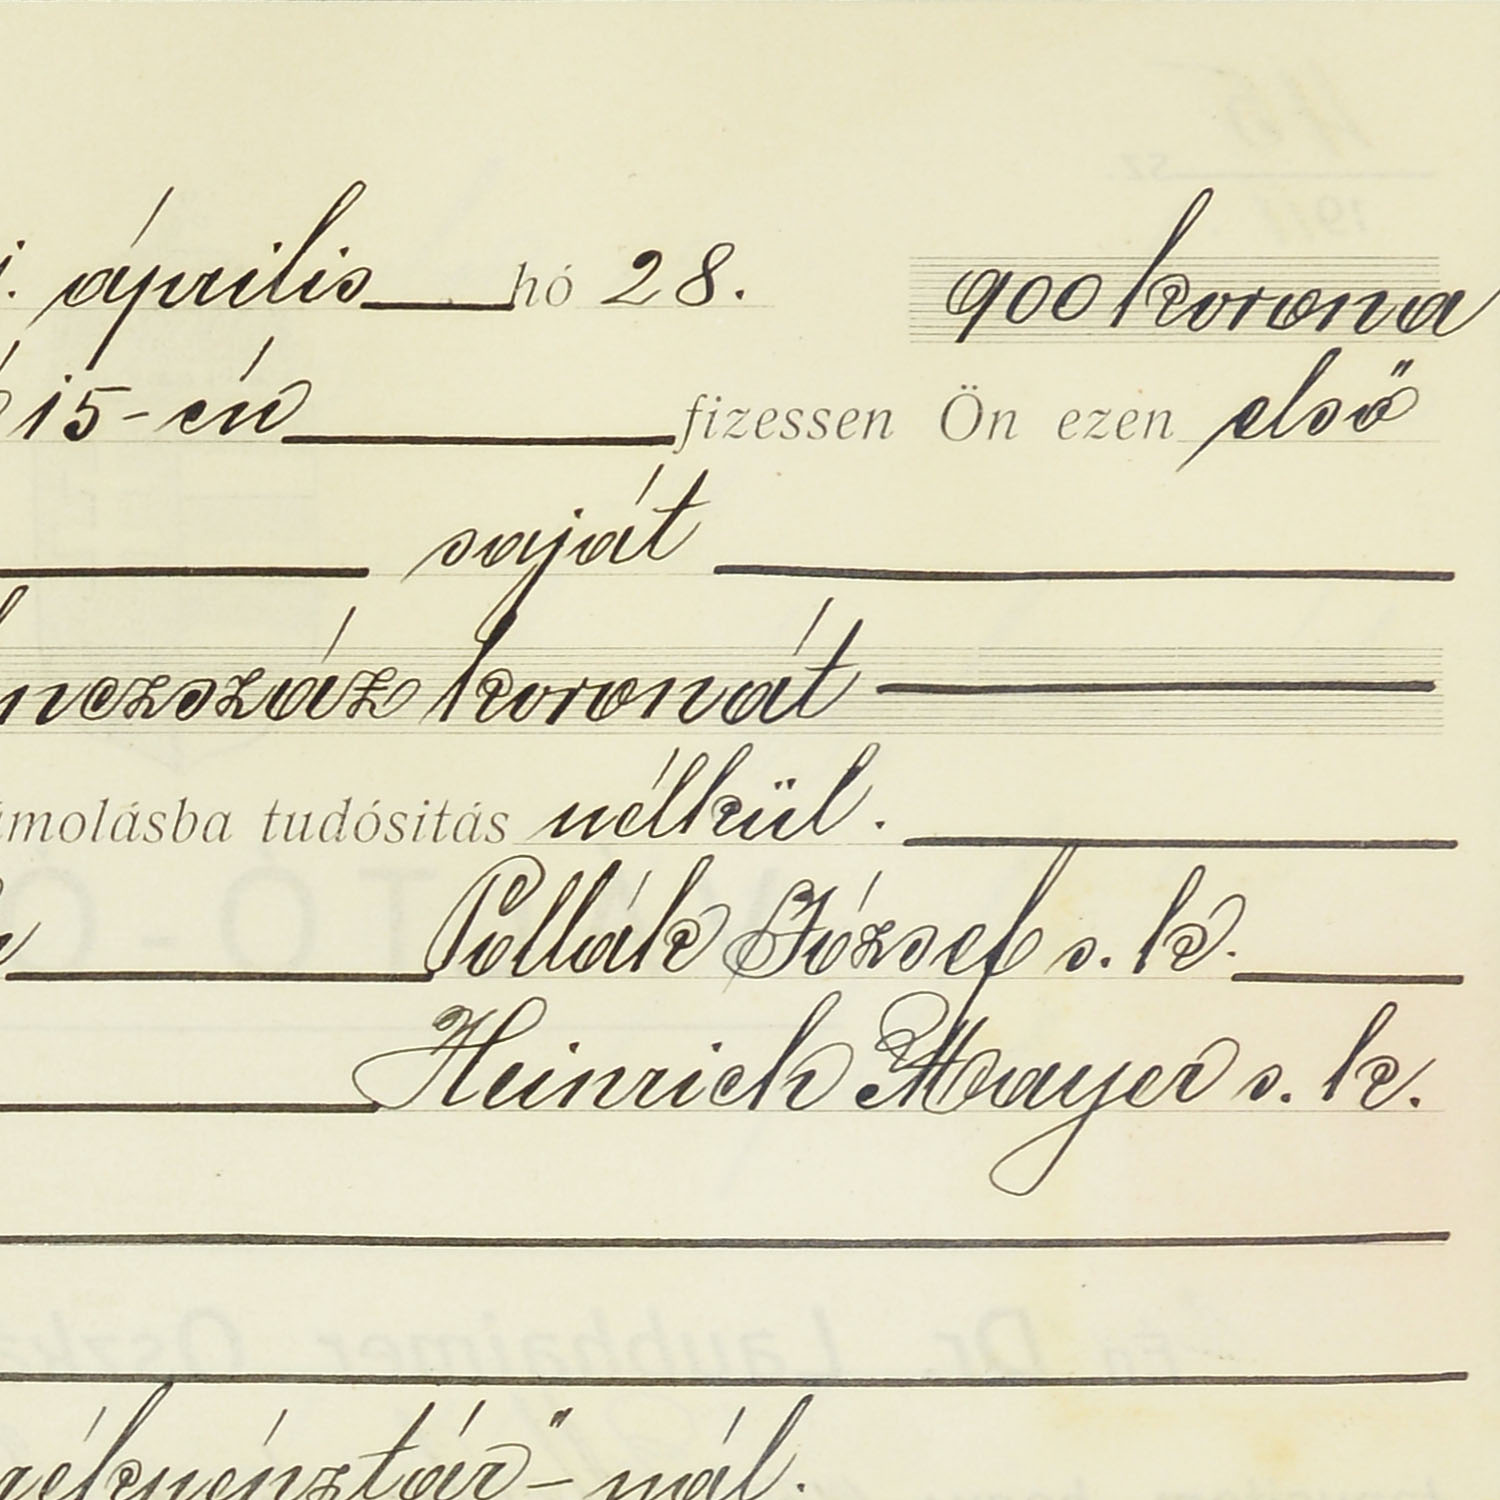 április hó 28. 900 korona
15-én fizessen Ön ezen első
saját
nczszáz koronát
ámolásba tudósitás nélkül.
Pollák József s. k.
Heinrich Mayer s. k.
ékpénztár"-nál.